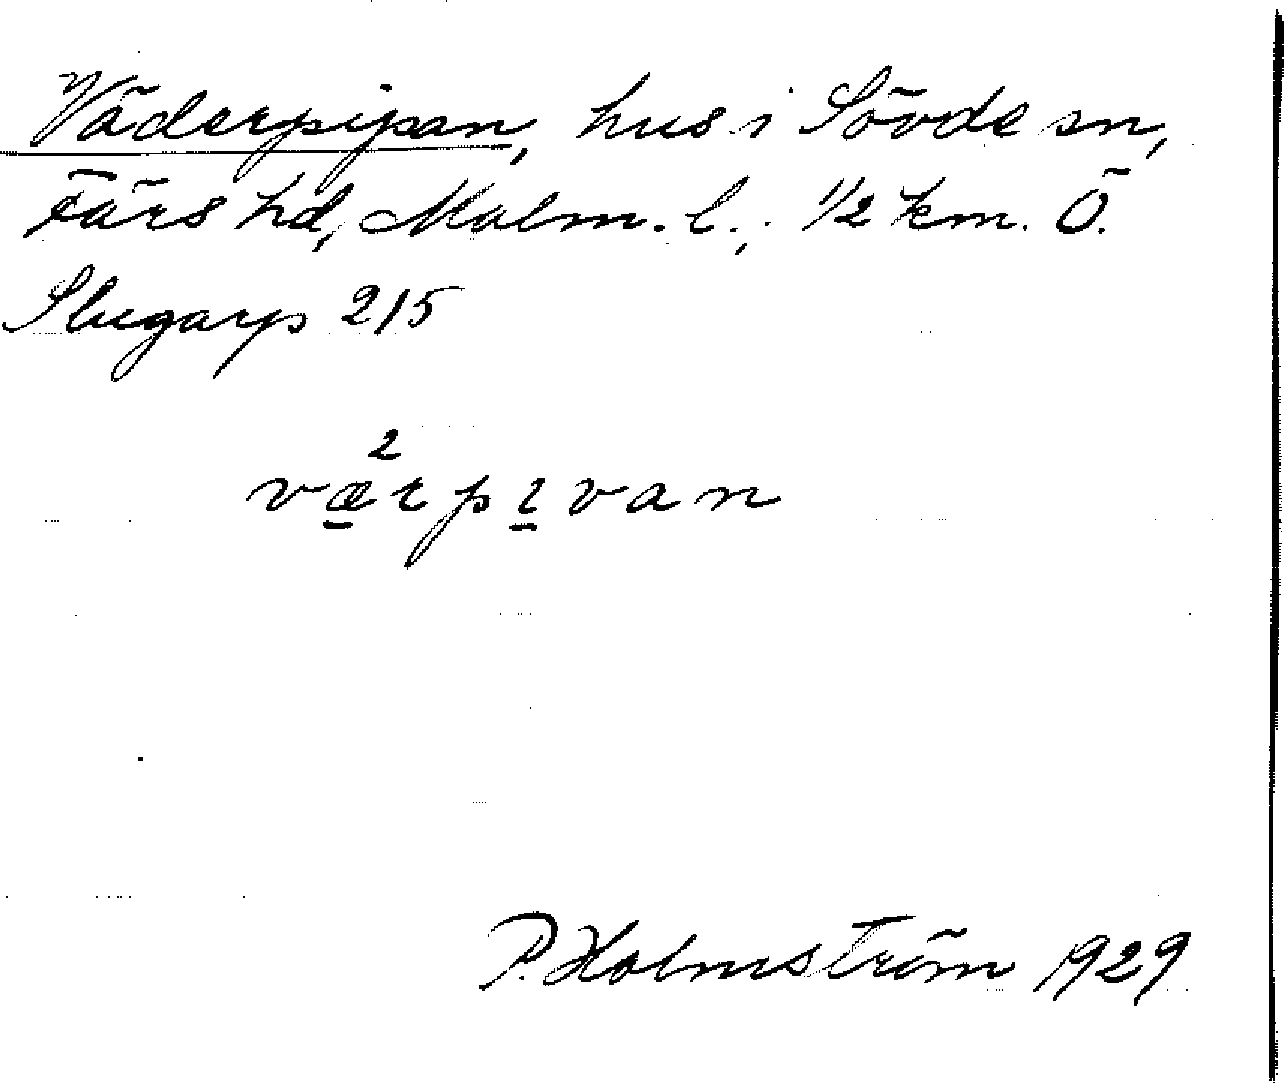 Väderpipan, hus i Sövde sn,
Färs hd, Malm. l., 1/2 km. Ö.
Slugarp 2/5
2
værpɩvan
P. Holmström 1929